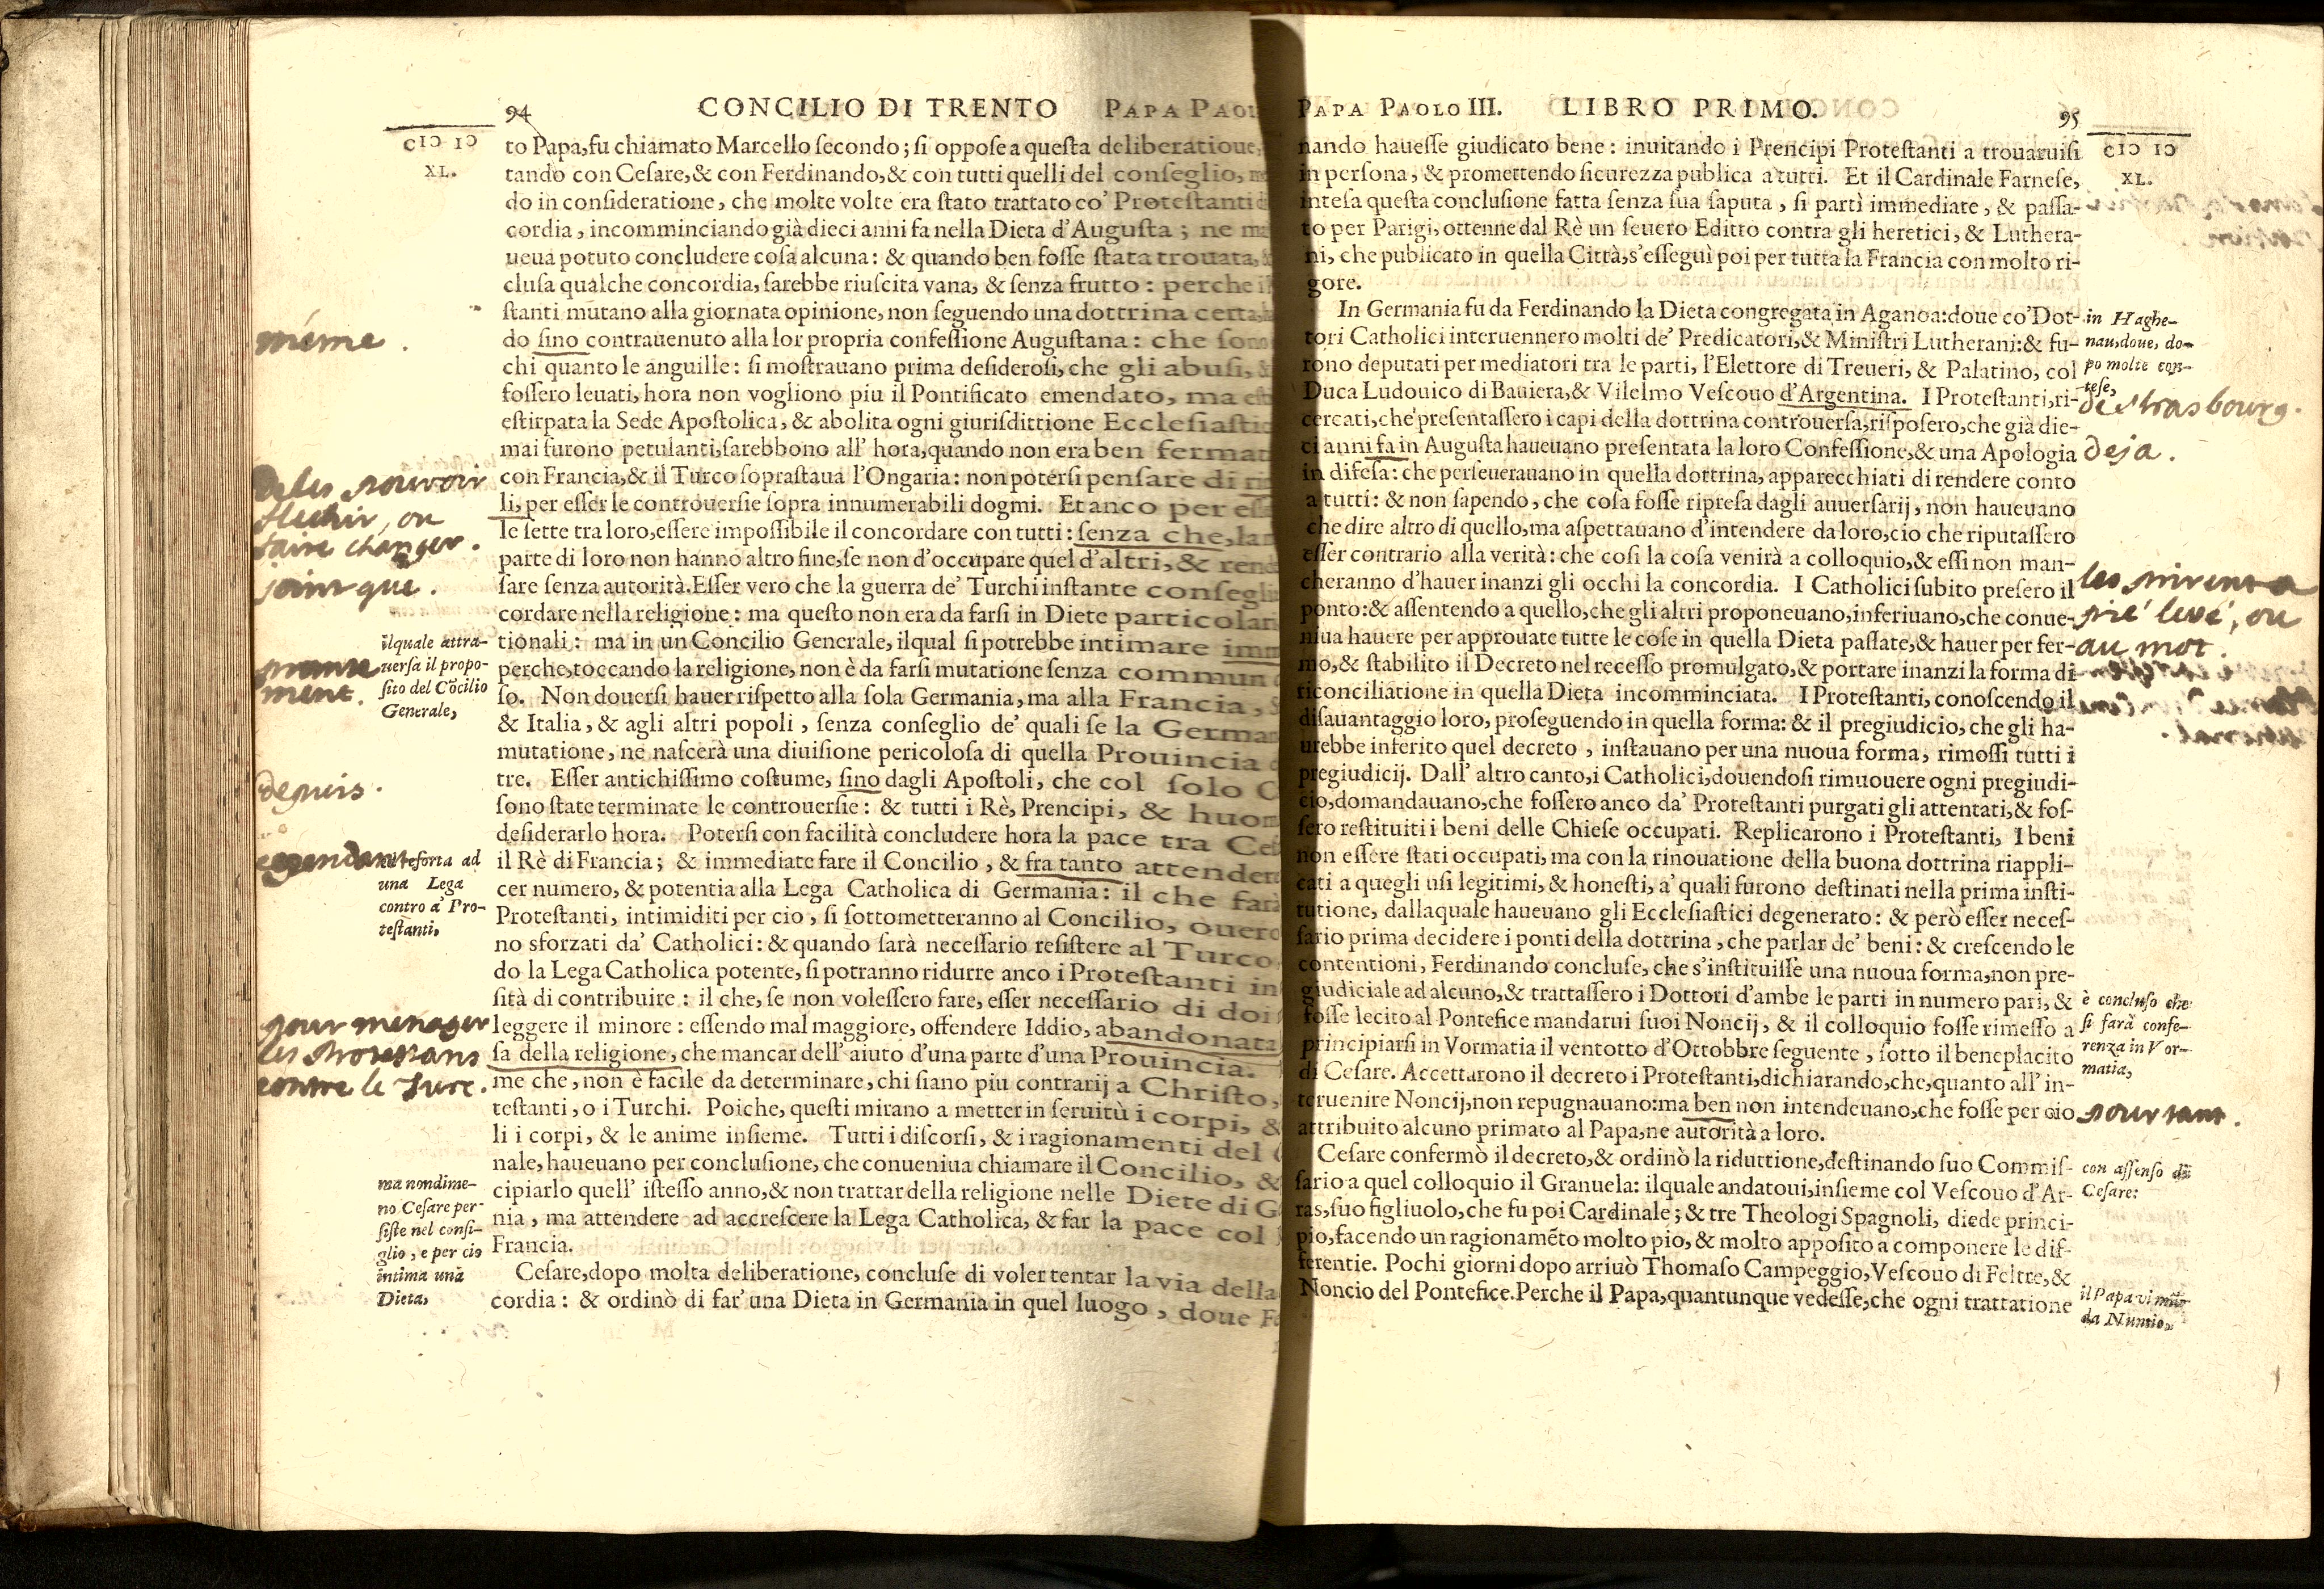 94 CONCILIO DI TRENTO PAPA PAOL
CIↃ IↃ
XL.
to Papa, fu chiamato Marcello ſecondo; ſi oppoſe a queſta deliberatioue,
tando con Ceſare, & con Ferdinando, & con tutti quelli del conſeglio,
do in conſideratione, che molte volte era ſtato trattato co' Proteſtanti
cordia, incomminciando già dieci anni fa nella Dieta d'Auguſta; ne
ueua potuto concludere coſa alcuna: & quando ben foſſe ſtata trouata,
cluſa qualche concordia, ſarebbe riuſcita vana, & ſenza frutto: perche
ſtanti mutano alla giornata opinione, non ſeguendo una dottrina certa,
do ſino contrauenuto alla lor propria confeſſione Auguſtana: che ſono
chi quanto le anguille: ſi moſtrauano prima deſideroſi, che gli abuſi,
foſſero leuati, hora non vogliono piu il Pontificato emendato, ma
eſtirpata la Sede Apoſtolica, & abolita ogni giuriſdittione Eccleſiaſtic
mai furono petulanti, ſarebbono all' hora, quando non era ben fermat
con Francia, & il Turco ſopraſtaua l'Ongaria: non poterſi penſare di
li, per eſſer le controuerſie ſopra innumerabili dogmi. Et anco per
le ſette tra loro, eſſere impoſſibile il concordare con tutti: ſenza che,
parte di loro non hanno altro fine, ſe non d'occupare quel d'altri, & rend
ſare ſenza autorità. Eſſer vero che la guerra de' Turchi inſtante conſegli
cordare nella religione: ma queſto non era da farſi in Diete particolar
tionali: ma in un Concilio Generale, ilqual ſi potrebbe intimare imm
perche, toccando la religione, non è da farſi mutatione ſenza commun
ſo. Non douerſi hauer riſpetto alla ſola Germania, ma alla Francia,
& Italia, & agli altri popoli, ſenza conſeglio de' quali ſe la Germa
mutatione, ne naſcerà una diuiſione pericoloſa di quella Prouincia
tre. Eſſer antichiſſimo coſtume, ſino dagli Apoſtoli, che col ſolo C
ſono ſtate terminate le controuerſie: & tutti i Rè, Prencipi, & huom
deſiderarlo hora. Poterſi con facilità concludere hora la pace tra Ceſ
il Rè di Francia; & immediate fare il Concilio, & fra tanto attender
cer numero, & potentia alla Lega Catholica di Germania: il che farà
Proteſtanti, intimiditi per cio, ſi ſottometteranno al Concilio, ouero
no sforzati da' Catholici: & quando ſarà neceſſario reſiſtere al Turco
do la Lega Catholica potente, ſi potranno ridurre anco i Proteſtanti in
ſità di contribuire: il che, ſe non voleſſero fare, eſſer neceſſario di doi
leggere il minore: eſſendo mal maggiore, offendere Iddio, abandonata
ſa della religione, che mancar dell' aiuto d'una parte d'una Prouincia.
me che, non è facile da determinare, chi ſiano piu contrarij a Chriſto,
teſtanti, o i Turchi. Poiche, queſti mirano a metter in ſeruitù i corpi, &
li i corpi, & le anime inſieme. Tutti i diſcorſi, & i ragionamenti del
nale, haueuano per concluſione, che conueniua chiamare il Concilio, &
cipiarlo quell' iſteſſo anno, & non trattar della religione nelle Diete di G
nia, ma attendere ad accreſcere la Lega Catholica, & far la pace col
Francia.
Ceſare, dopo molta deliberatione, concluſe di voler tentar la via della
cordia: & ordinò di far' una Dieta in Germania in quel luogo, doue
même.
de les pouvoir
flechir, ou
faire changer.
joint que.
ilquale attra-
uerſa il propo-
ſito del Cōcilio
Generale,
ment.
depuis.
cependant
eſorta ad
una Lega
contro a' Pro-
teſtanti,
pour menager
les Protestans
contre le Turc.
ma nondime-
no Ceſare per-
ſiſte nel conſi-
glio, e per cio
intima una
Dieta,
PAPA PAOLO III. LIBRO PRIMO. 95
CIↃ IↃ
XL.
nando haueſſe giudicato bene: inuitando i Prencipi Proteſtanti a trouaruiſi
in perſona, & promettendo ſicurezza publica a tutti. Et il Cardinale Farneſe,
inteſa queſta concluſione fatta ſenza ſua ſaputa, ſi partì immediate, & paſſa-
to per Parigi, ottenne dal Rè un ſeuero Editto contra gli heretici, & Luthera-
ni, che publicato in quella Città, s'eſſeguì poi per tutta la Francia con molto ri-
gore.
In Germania fu da Ferdinando la Dieta congregata in Aganoa: doue co' Dot-
tori Catholici interuennero molti de' Predicatori, & Miniſtri Lutherani: & fu-
rono deputati per mediatori tra le parti, l'Elettore di Treueri, & Palatino, col
Duca Ludouico di Bauiera, & Vilelmo Veſcouo d'Argentina. I Proteſtanti, ri-
cercati, che preſentaſſero i capi della dottrina controuerſa, riſpoſero, che già die-
ci anni fa in Auguſta haueuano preſentata la loro Confeſſione, & una Apologia
in difeſa: che perſeuerauano in quella dottrina, apparecchiati di rendere conto
a tutti: & non ſapendo, che coſa foſſe ripreſa dagli auuerſarij, non haueuano
che dire altro di quello, ma aſpettauano d'intendere da loro, cio che riputaſſero
eſſer contrario alla verità: che coſi la coſa venirà a colloquio, & eſſi non man-
cheranno d'hauer inanzi gli occhi la concordia. I Catholici ſubito preſero il
ponto: & aſſentendo a quello, che gli altri proponeuano, inferiuano, che conue-
niua hauere per approuate tutte le coſe in quella Dieta paſſate, & hauer per fer-
mo, & ſtabilito il Decreto nel receſſo promulgato, & portare inanzi la forma di
riconciliatione in quella Dieta incomminciata. I Proteſtanti, conoſcendo il
diſauantaggio loro, proſeguendo in quella forma: & il pregiudicio, che gli ha-
urebbe inferito quel decreto, inſtauano per una nuoua forma, rimoſſi tutti i
pregiudicij. Dall' altro canto, i Catholici, douendoſi rimuouere ogni pregiudi-
cio, domandauano, che foſſero anco da' Proteſtanti purgati gli attentati, & foſ-
ſero reſtituiti i beni delle Chieſe occupati. Replicarono i Proteſtanti, I beni
non eſſere ſtati occupati, ma con la rinouatione della buona dottrina riappli-
cati a quegli uſi legitimi, & honeſti, a' quali furono deſtinati nella prima inſti-
tutione, dallaquale haueuano gli Eccleſiaſtici degenerato: & però eſſer neceſ-
ſario prima decidere i ponti della dottrina, che parlar de' beni: & creſcendo le
contentioni, Ferdinando concluſe, che s'inſtituiſſe una nuoua forma, non pre-
giudiciale ad alcuno, & trattaſſero i Dottori d'ambe le parti in numero pari, &
foſſe lecito al Pontefice mandarui ſuoi Noncij, & il colloquio foſſe rimeſſo a
principiarſi in Vormatia il ventotto d'Ottobbre ſeguente, ſotto il beneplacito
di Ceſare. Accettarono il decreto i Proteſtanti, dichiarando, che, quanto all' in-
teruenire Noncij, non repugnauano: ma ben non intendeuano, che foſſe per cio
attribuito alcuno primato al Papa, ne autorità a loro.
Ceſare confermò il decreto, & ordinò la riduttione, deſtinando ſuo Commiſ-
ſario a quel colloquio il Granuela: ilquale andatoui, inſieme col Veſcouo d'Ar-
ras, ſuo figliuolo, che fu poi Cardinale; & tre Theologi Spagnoli, diede princi-
pio, facendo un ragionamēto molto pio, & molto appoſito a componere le dif-
ferentie. Pochi giorni dopo arriuò Thomaſo Campeggio, Veſcouo di Feltre, &
Noncio del Pontefice. Perche il Papa, quantunque vedeſſe, che ogni trattatione
in Haghe-
nau, doue, do-
po molte con-
teſe,
de Strasbourg.
deja.
les prirent a
pié levé, ou
au mot.
è concluſo che
ſi farà confe-
renza in Vor-
matia,
pourtant.
con aſſenſo di
Ceſare:
il Papa vi mā-
da Nuntio,